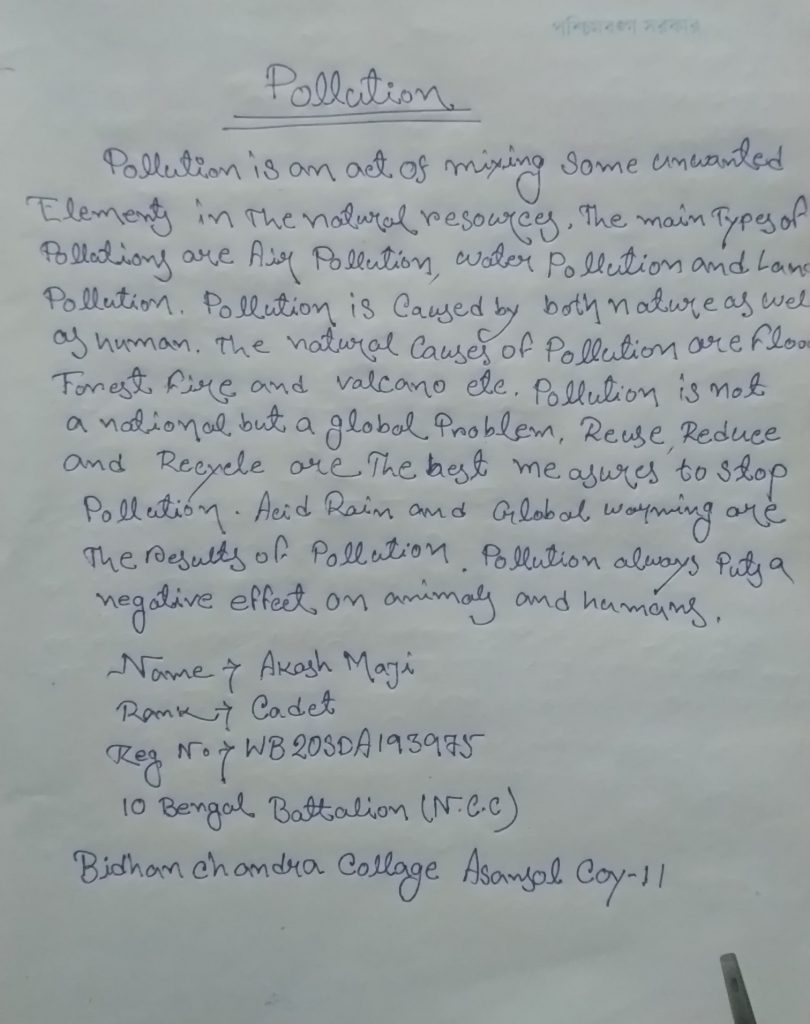 পশ্চিমবঙ্গ সরকার
Pollution
Pollution is an act of mixing some unwanted
Elements in The natural resources. The main Types of
Pollutions are Air Pollution, water Pollution and Lan
Pollution. Pollution is Caused by both nature as wel
as human. The natural Causes of Pollution are floo
Forest fire and valcano etc. Pollution is not
a national but a global Problem. Reuse, Reduce
and Recycle are The best measures to stop
Pollution. Acid Rain and Global warming are
The results of Pollution. Pollution always Puts a
negative effect on animals and humans.
Name → Akash Maji
Rank → Cadet
Reg No → WB20SDA193975
10 Bengal Battalion (N.C.C)
Bidhan chandra Collage Asansol Coy-11